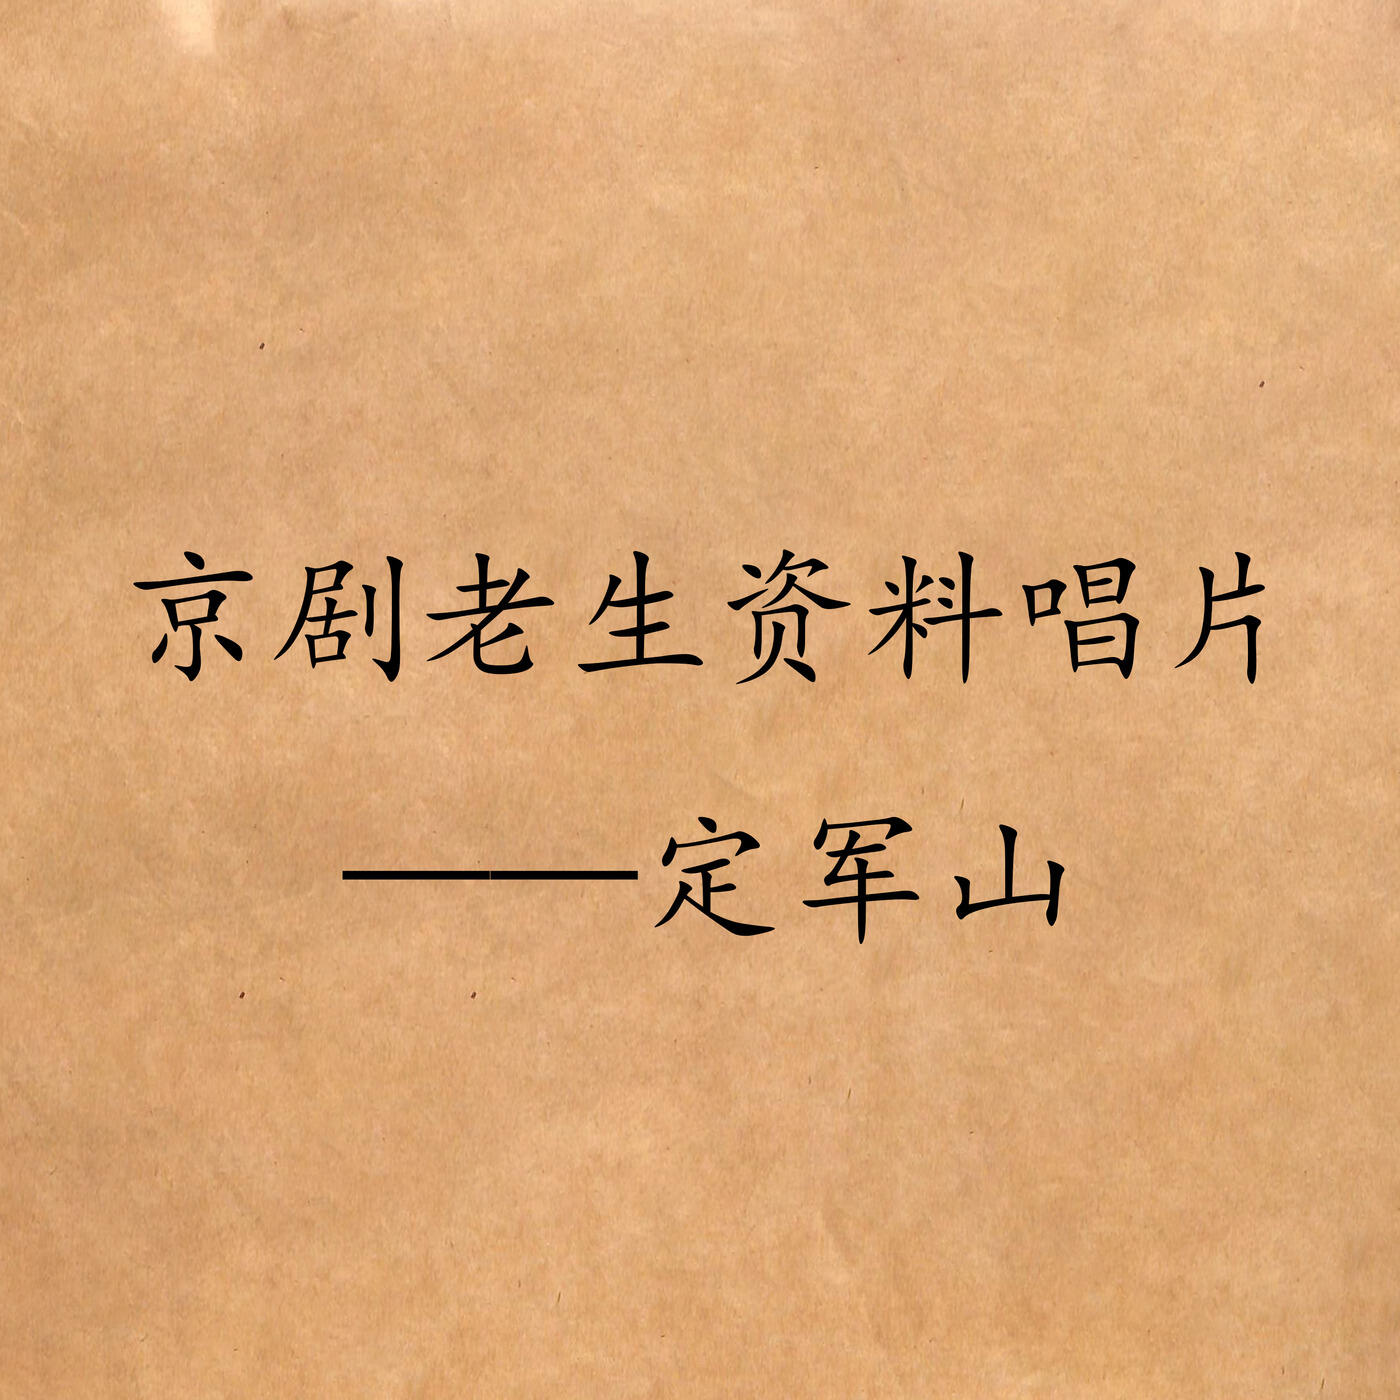 京剧老生资料唱片
——定军山